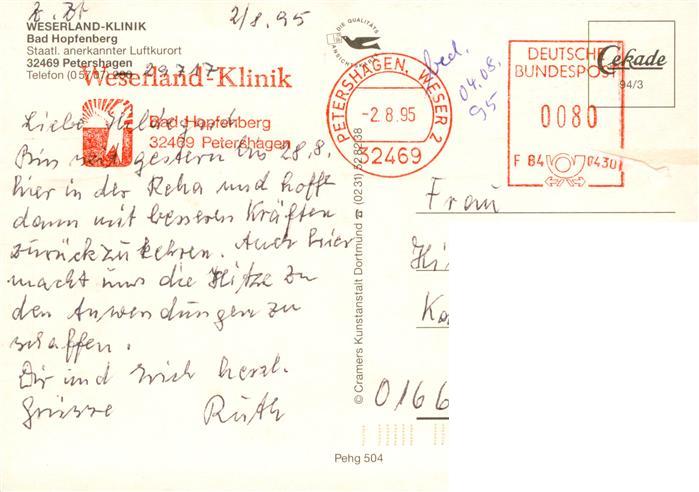 z. Zt
2/8.95
WESERLAND-KLINIK
Bad Hopfenberg
Staatl. anerkannter Luftkurort
32469 Petershagen
Telefon (0 57 07) 299 29717
Weserland-Klinik
Bad Hopfenberg
32469 Petershagen
Liebe Hildegard
Bin seit gestern bis 28.8.
hier in der Reha und hoffe
dann mit besseren Kräften
zurückzukehren. Auch hier
macht uns die Hitze zu
den Anwendungen zu
schaffen.
Dir und Erich herzl.
Grüsse Ruth
DIE QUALITÄTS
ANSICHTS
PETERSHAGEN, WESER 2
-2.8.95
32469
bed.
04.08.
95
DEUTSCHE
BUNDESPOST
0080
F 84 0430
Cekade
94/3
© Cramers Kunstanstalt Dortmund ☎ (0231)
Frau
Hi
Ka
0166
Pehg 504